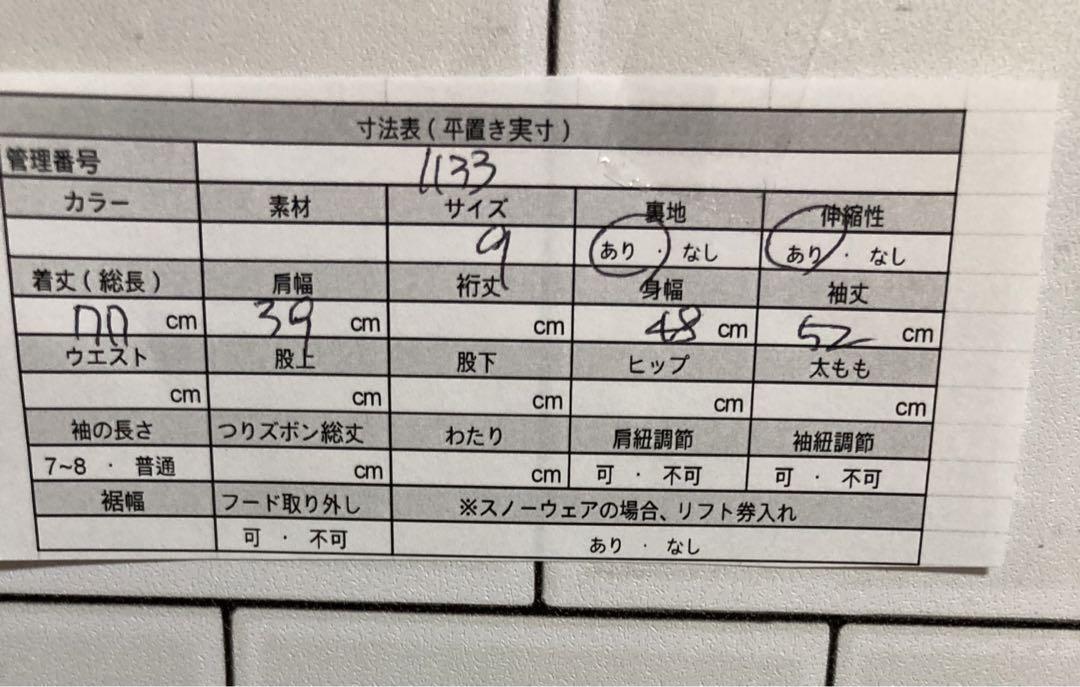 寸法表(平置き実寸)
管理番号 1133
カラー 素材 サイズ 裏地 伸縮性
9 あり ・ なし あり ・ なし
着丈(総長) 肩幅 裄丈 身幅 袖丈
cm 39 cm cm 48 cm 52 cm
ウエスト 股上 股下 ヒップ 太もも
cm cm cm cm cm
袖の長さ つりズボン総丈 わたり 肩紐調節 袖紐調節
7~8 ・ 普通 cm cm 可 ・ 不可 可 ・ 不可
裾幅 フード取り外し ※スノーウェアの場合、リフト券入れ
可 ・ 不可 あり ・ なし